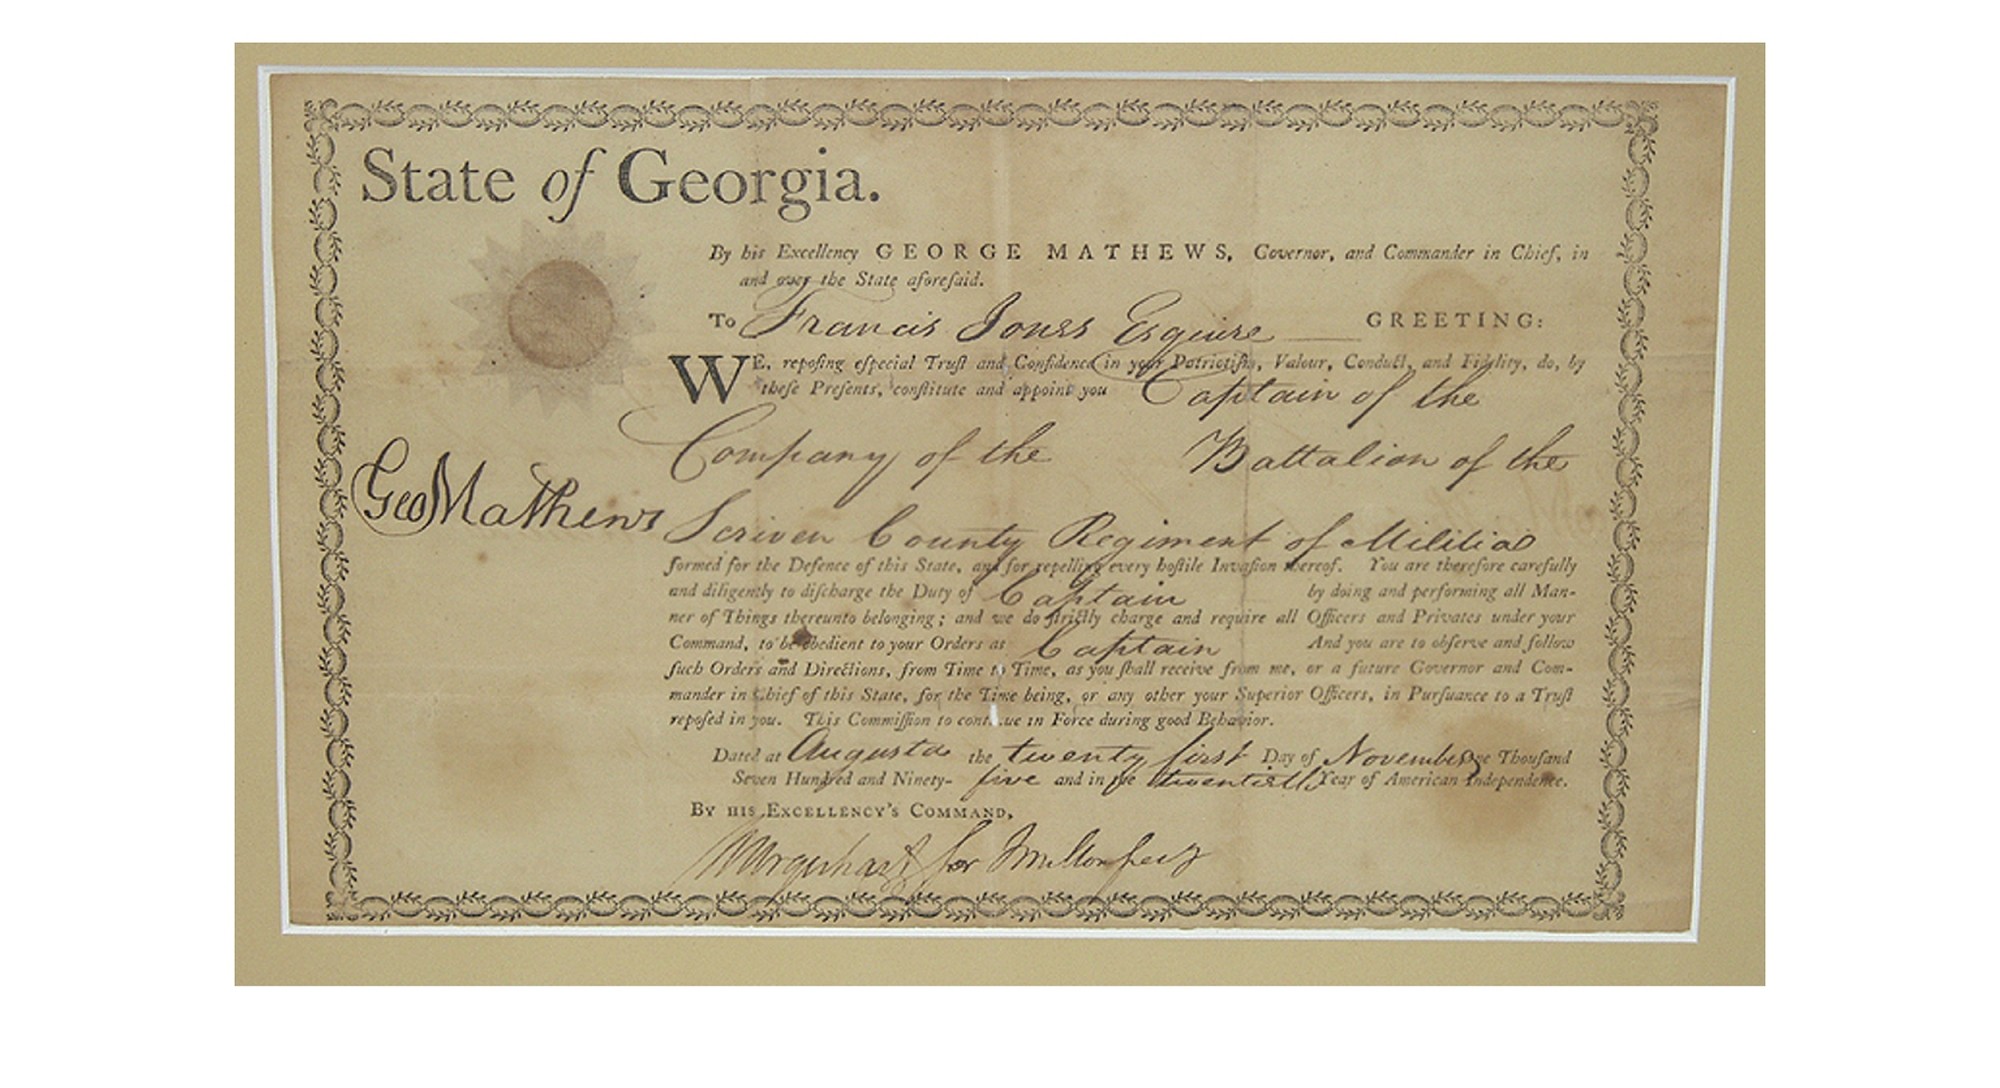 State of Georgia.
By his Excellency GEORGE MATHEWS, Governor, and Commander in Chief, in
and over the State aforeſaid.
To Francis Jones Esquire GREETING:
WE, repoſing eſpecial Truſt and Confidence in your Patriotiſm, Valour, Conduct, and Fidelity, do, by
theſe Preſents, conſtitute and appoint you Captain of the
Company of the Battalion of the
Geo Mathews
Scriven County Regiment of Militia
formed for the Defence of this State, and for repelling every hoſtile Invaſion thereof. You are therefore carefully
and diligently to diſcharge the Duty of Captain by doing and performing all Man-
ner of Things thereunto belonging; and we do ſtrictly charge and require all Officers and Privates under your
Command, to be obedient to your Orders as Captain And you are to obſerve and follow
ſuch Orders and Directions, from Time to Time, as you ſhall receive from me, or a future Governor and Com-
mander in Chief of this State, for the Time being, or any other your Superior Officers, in Purſuance to a Truſt
repoſed in you. This Commiſſion to continue in Force during good Behavior.
Dated at Augusta the twenty first Day of November One Thouſand
Seven Hundred and Ninety- five and in the twentieth Year of American Independence.
BY HIS EXCELLENCY'S COMMAND,
Urquhart for Milton